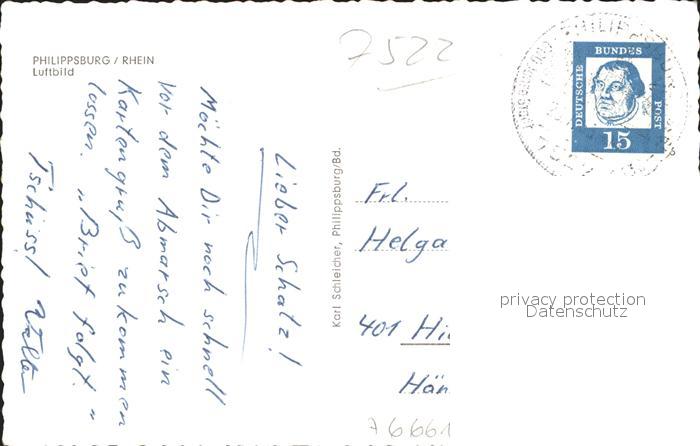 PHILIPPSBURG / RHEIN
Luftbild
7522
DEUTSCHE
BUNDES
POST
15
Lieber Schatz!
Möchte Dir noch schnell
vor dem Abmarsch ein
Kartengruß zukommen
lassen. „Brief folgt."
Tschüssl Walter
Karl Schleicher, Philippsburg/Bd.
Frl.
Helga
401 Hi
Hän
A6661
privacy protection
Datenschutz